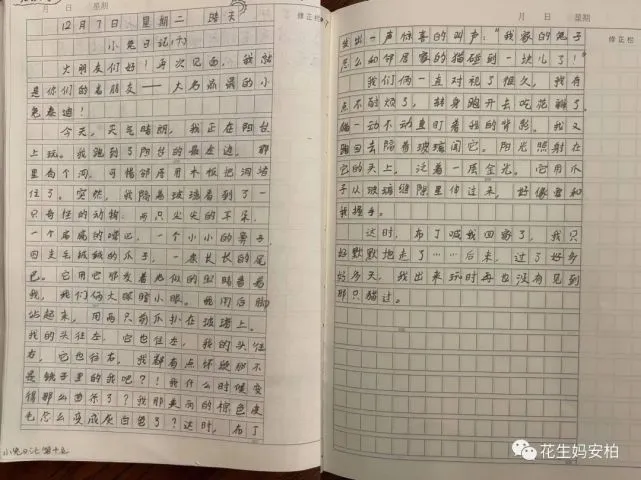 月 日 星期
修正栏
12月7日 星期二 晴天
小兔日记(十)
大朋友们好!再次见面,我就
是你们的老朋友——大名鼎鼎的小
兔
今天,天气晴朗,我正在阳台
上玩。我跑到了阳台的最左边,那
里有个洞。可惜邻居用木板把洞堵
住了。突然,我隔着玻璃看到了一
只奇怪的动物:两只尖尖的耳朵,
一个扁扁的嘴巴,一个小小的鼻子,
四支毛绒绒的爪子,一条长长的尾
巴。它用它那发着光似的眼睛看着
我,我们俩大眼瞪小眼。它用后脚
站起来,用两只前爪扒在玻璃上。
我的头往左,它也往左,我的头往
右,它也往右。我都有点怀疑那不
是镜子里的我吧?!我什么时候变
得那么苗条了?我那美丽的棕色皮
毛怎么变成灰白色了?这时,布丁
小兔日记 第十五
月 日 星期
修正栏
发出一声惊喜的叫声:"我家的兔子
怎么和邻居家的猫碰到一块儿了!"
我们俩一直对视了很久,我有
点不耐烦了,转身跑开去吃花瓣了,
猫一动不动直盯着我的背影。我又
跑回去隔着玻璃闻它。阳光照射在
它的头上,泛着一层金光。它用爪
子从玻璃缝隙里伸过来,好像要和
我握手。
这时,布丁喊我回家了,我只
好默默地走了……后来,过了好多
好多天,我出来玩时再也没有见到
那只猫过。
花生妈安柏